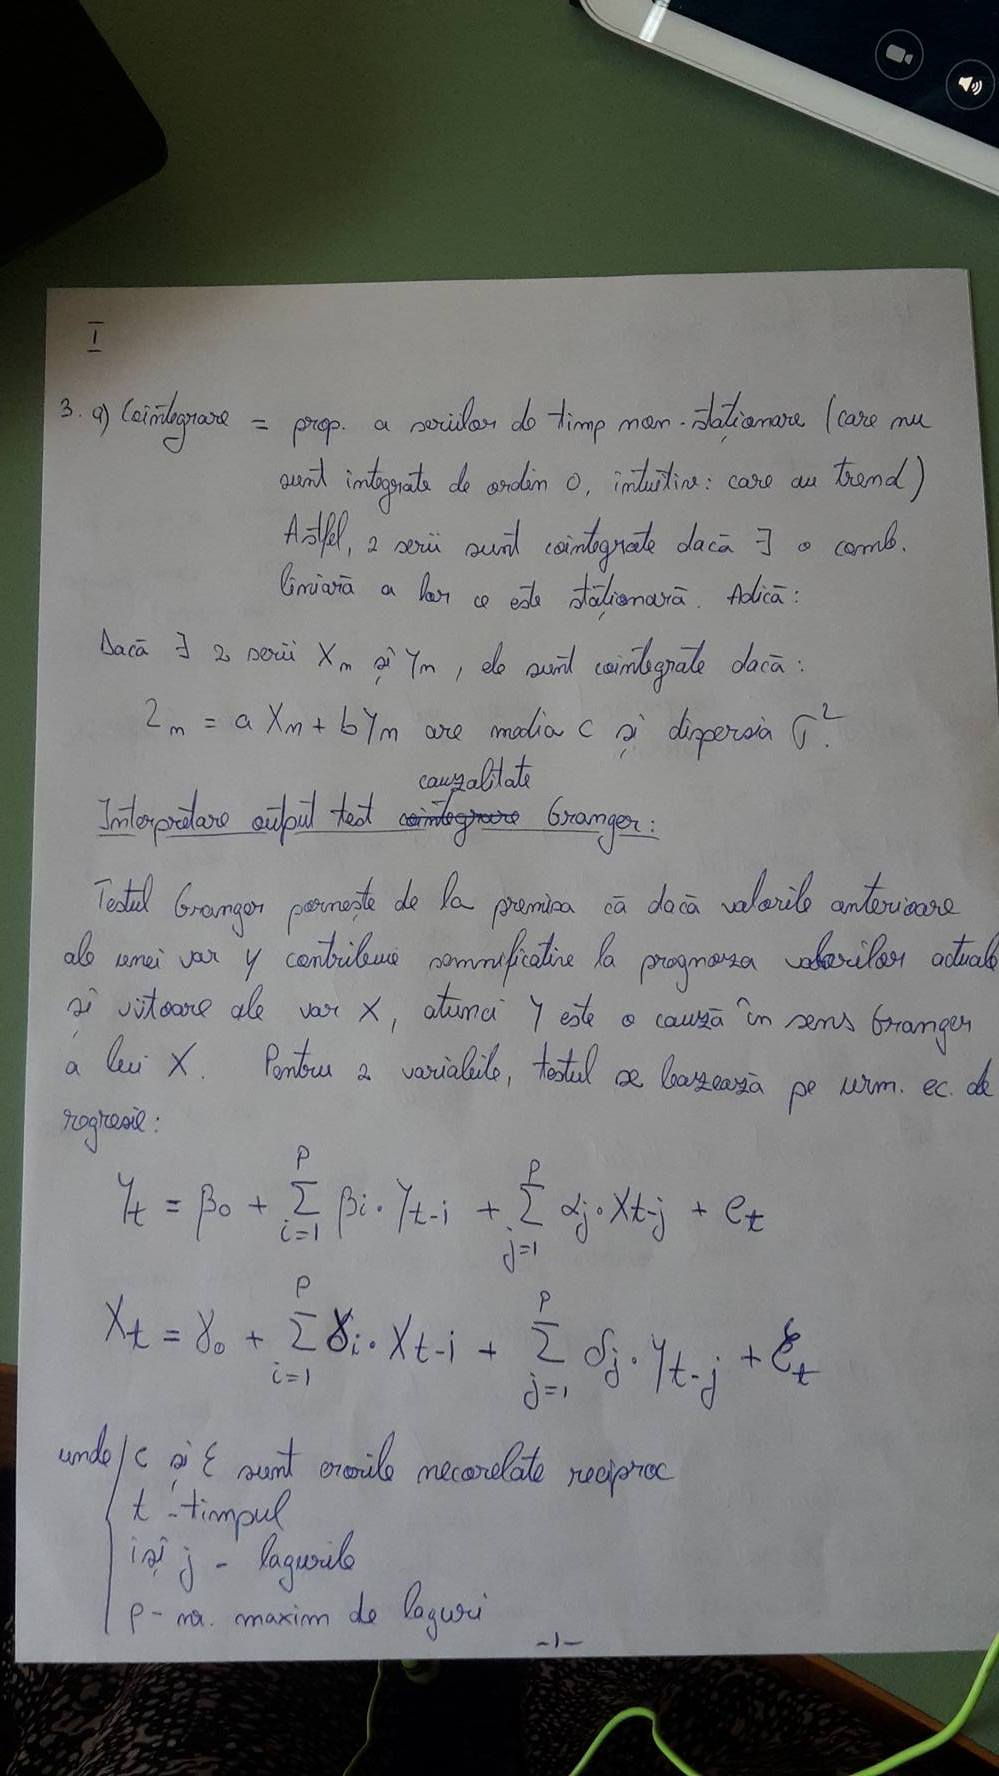 I
3. a) Cointegrare = prop. a seriilor de timp non-staționare (care nu
sunt integrate de ordin 0, intuitiv: care au trend)
Astfel, 2 serii sunt cointegrate dacă ∃ o comb.
liniară a lor ce este staționară. Adică:
Dacă ∃ 2 serii Xn și Yn, ele sunt cointegrate dacă:
Zn = a Xn + b Yn are media c și dispersia σ².
cauzalitate
Interpretare output test cointegrare Granger:
Testul Granger pornește de la premisa că dacă valorile anterioare
ale unei var Y contribuie semnificativ la prognoza valorilor actuale
și viitoare ale var X, atunci Y este o cauză în sens Granger
a lui X. Pentru 2 variabile, testul se bazează pe urm. ec. de
regresie:
Yt = β0 + Σ_{i=1}^{P} βi · Yt-i + Σ_{j=1}^{P} αj · Xt-j + et
Xt = γ0 + Σ_{i=1}^{P} γi · Xt-i + Σ_{j=1}^{P} δj · Yt-j + Ɛt
unde / e și Ɛ sunt erorile necorelate reciproc
t - timpul
i și j - lagurile
p - nr. maxim de laguri
-1-